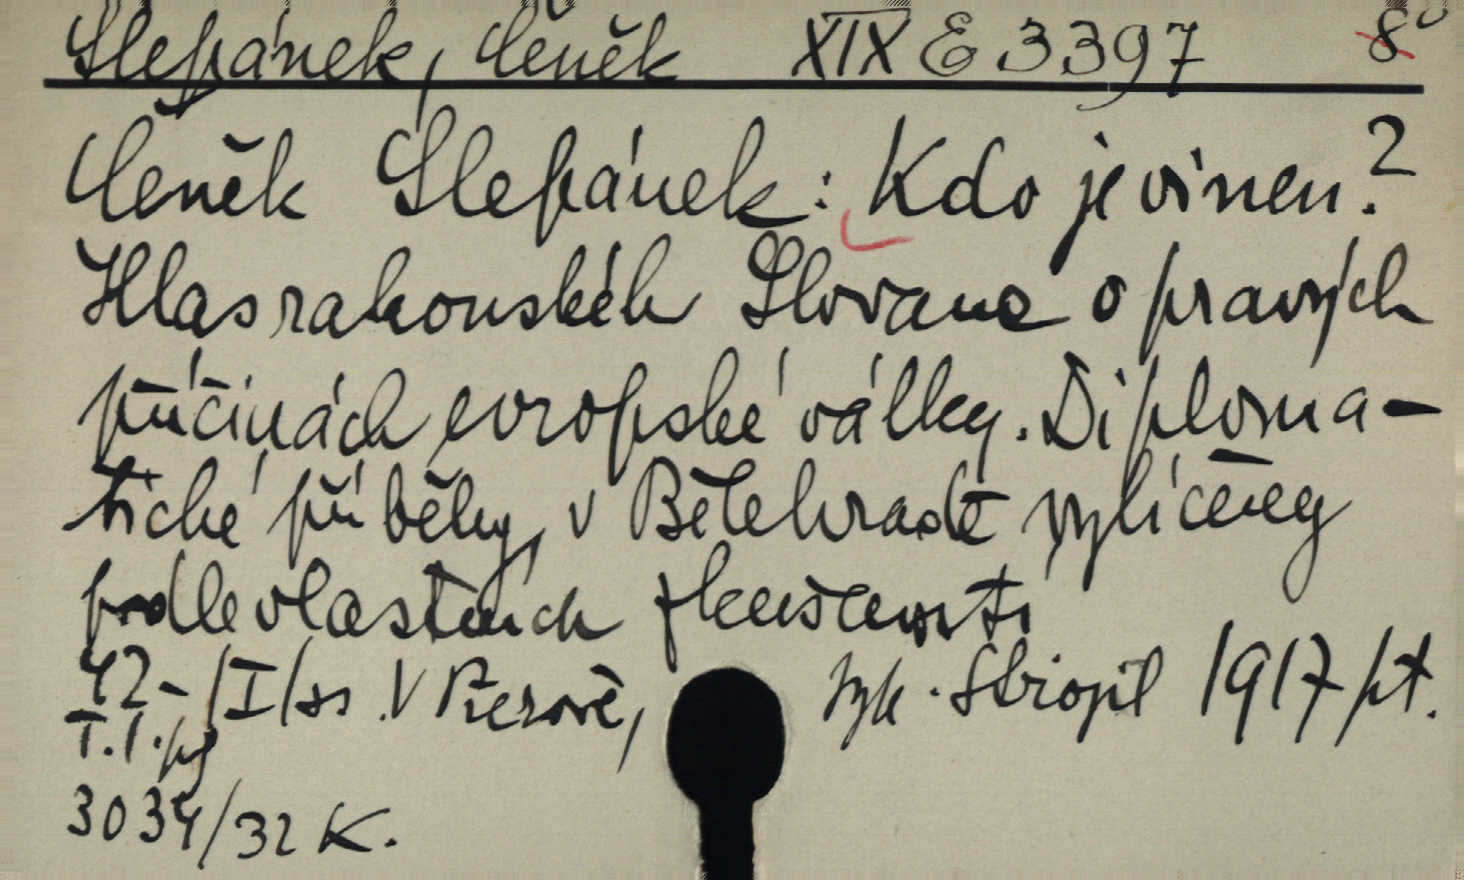 Slepánek, Čeněk XIX E 3397 8°
Čeněk Slepánek: Kdo je vinen?
Hlas rakouskéh Slovana o pravých
příčinách evropské války. Diploma-
tické příběhy, v Bělehradě vylíčeny
podle vlastních zkušeností
42-/I/ss. V Přerově, Strojil 1917/pt.
T.T.
3034/32 K.